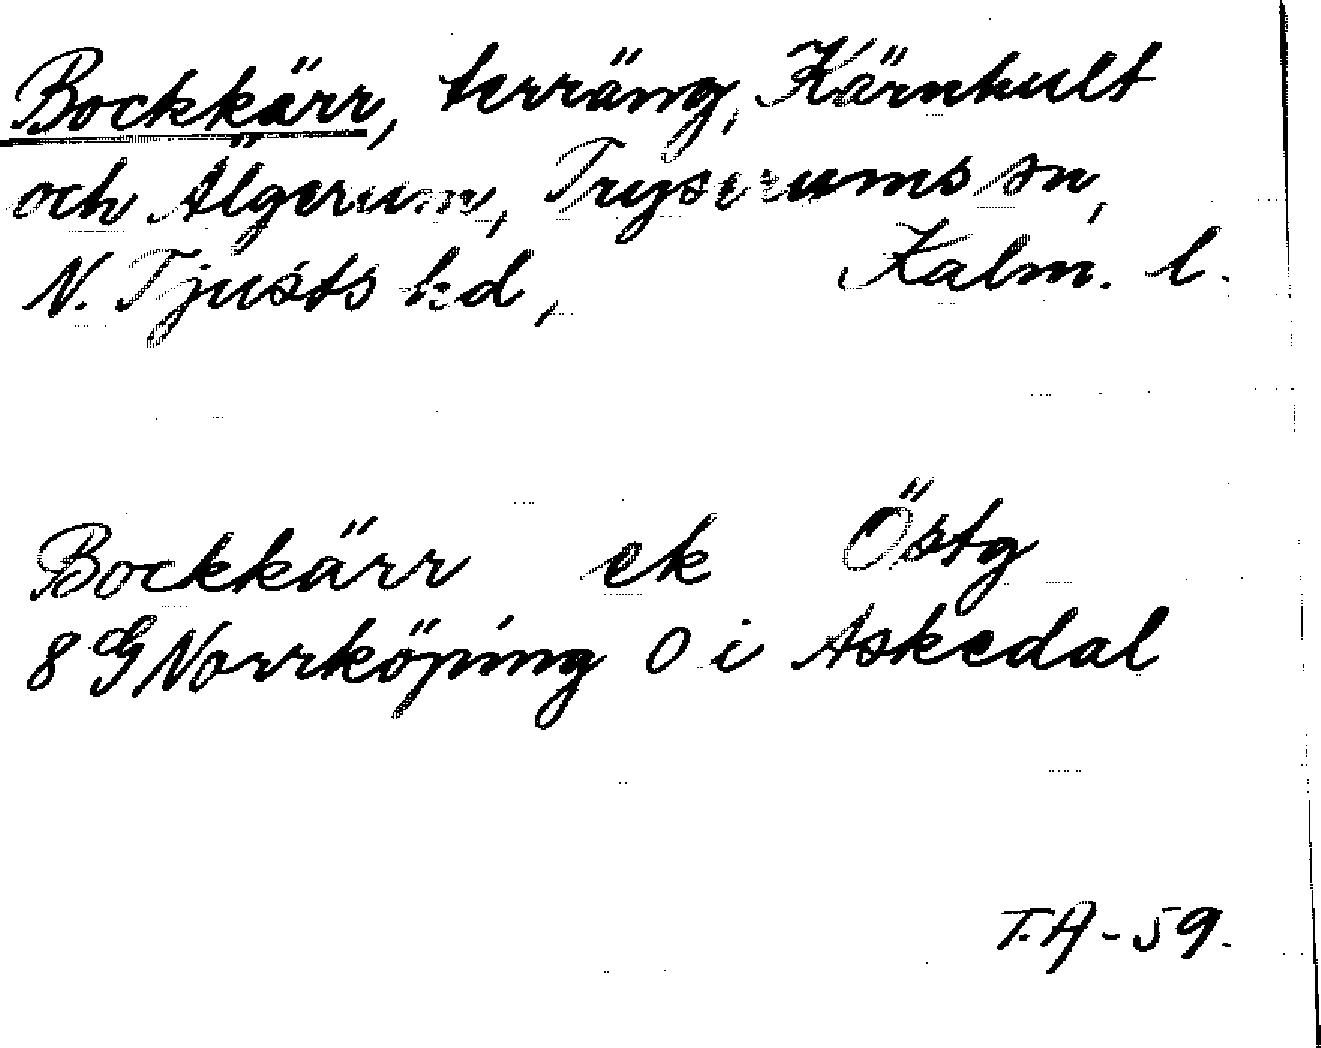 Bockkärr, terräng, Kärnhult
och Älgerum, Tryserums sn,
N. Tjusts hd, Kalm. l.
Bockkärr ek Östg
8 G Norrköping O i Askedal
T.A-59.